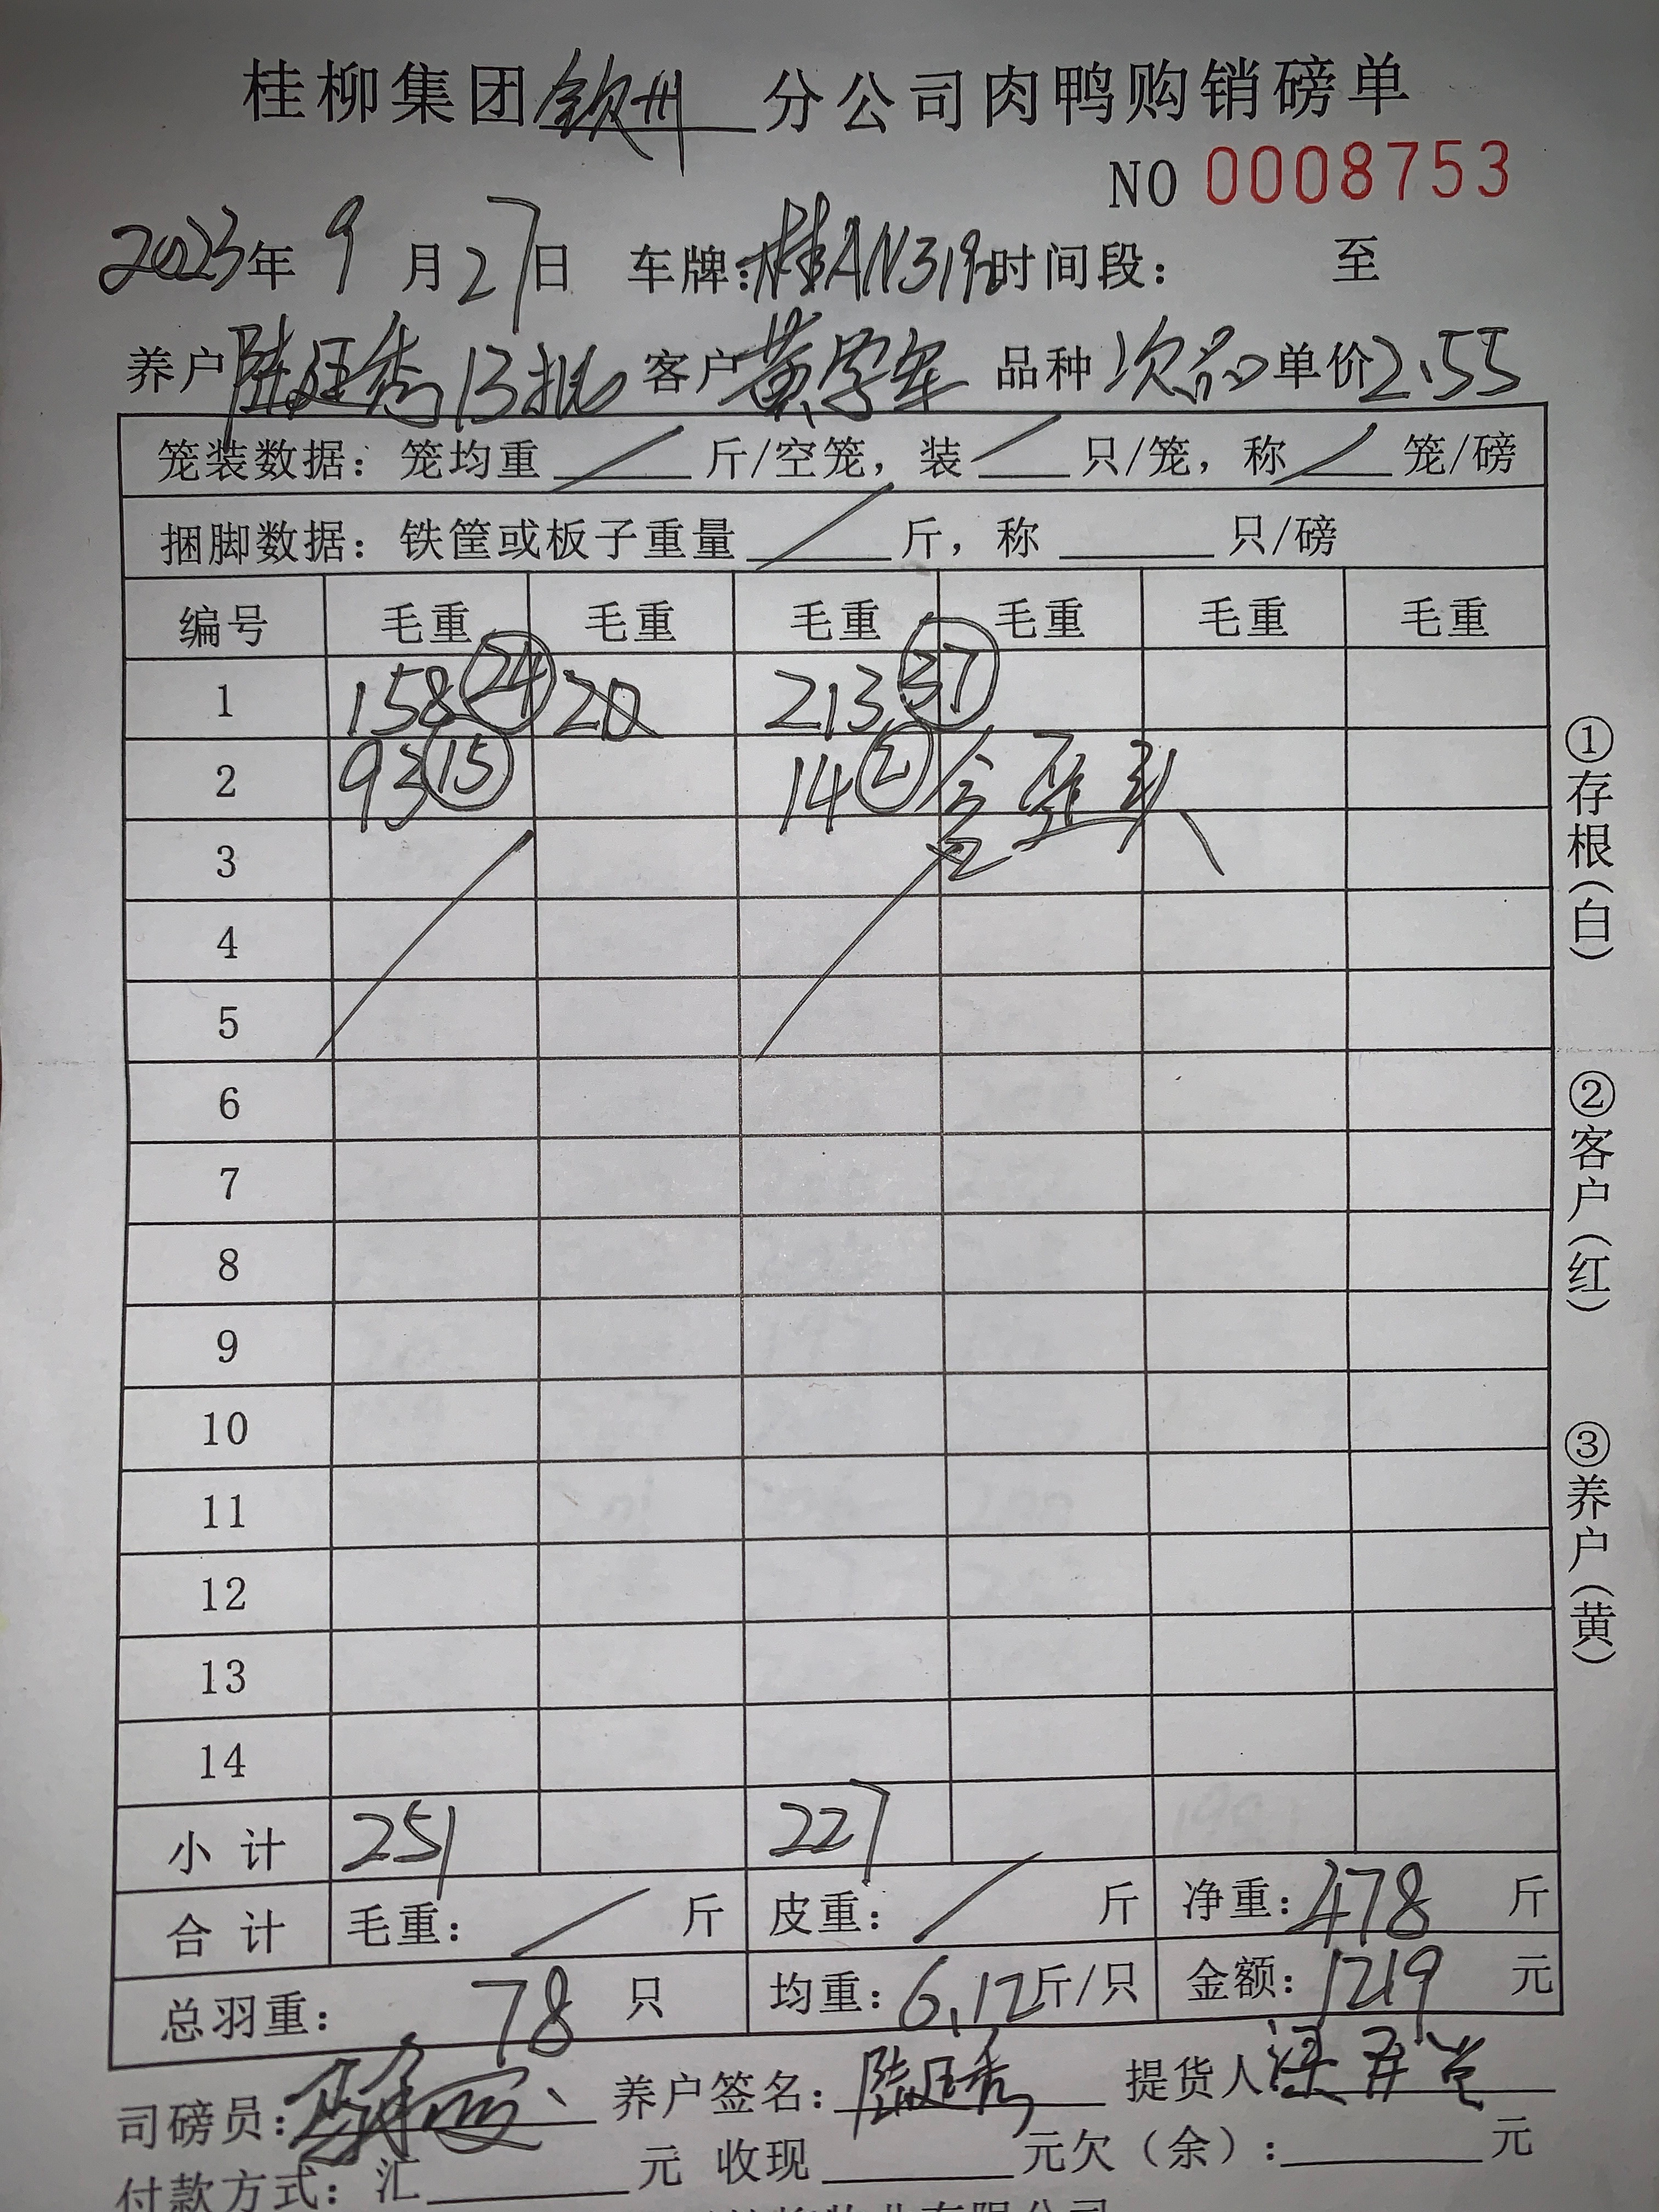 桂柳集团钦州分公司肉鸭购销磅单
NO 0008753
2023年9月27日 车牌:桂AN319 时间段: 至
养户 陆廷秀13批 客户 黄学军 品种 次品 单价2.55
笼装数据: 笼均重 / 斤/空笼, 装 / 只/笼, 称 / 笼/磅
捆脚数据: 铁筐或板子重量 / 斤, 称 只/磅
编号 毛重 毛重 毛重 毛重 毛重 毛重
1 158 24 20 213 37
2 93 15 14 2 歪头
3
4
5
6
7
8
9
10
11
12
13
14
小计 251 227
合计 毛重: / 斤 皮重: / 斤 净重: 478 斤
总羽重: 78 只 均重: 6.12斤/只 金额: 1219 元
司磅员: 养户签名: 陆廷秀 提货人
付款方式: 汇 元 收现 元欠(余): 元
①存根(白)
②客户(红)
③养户(黄)